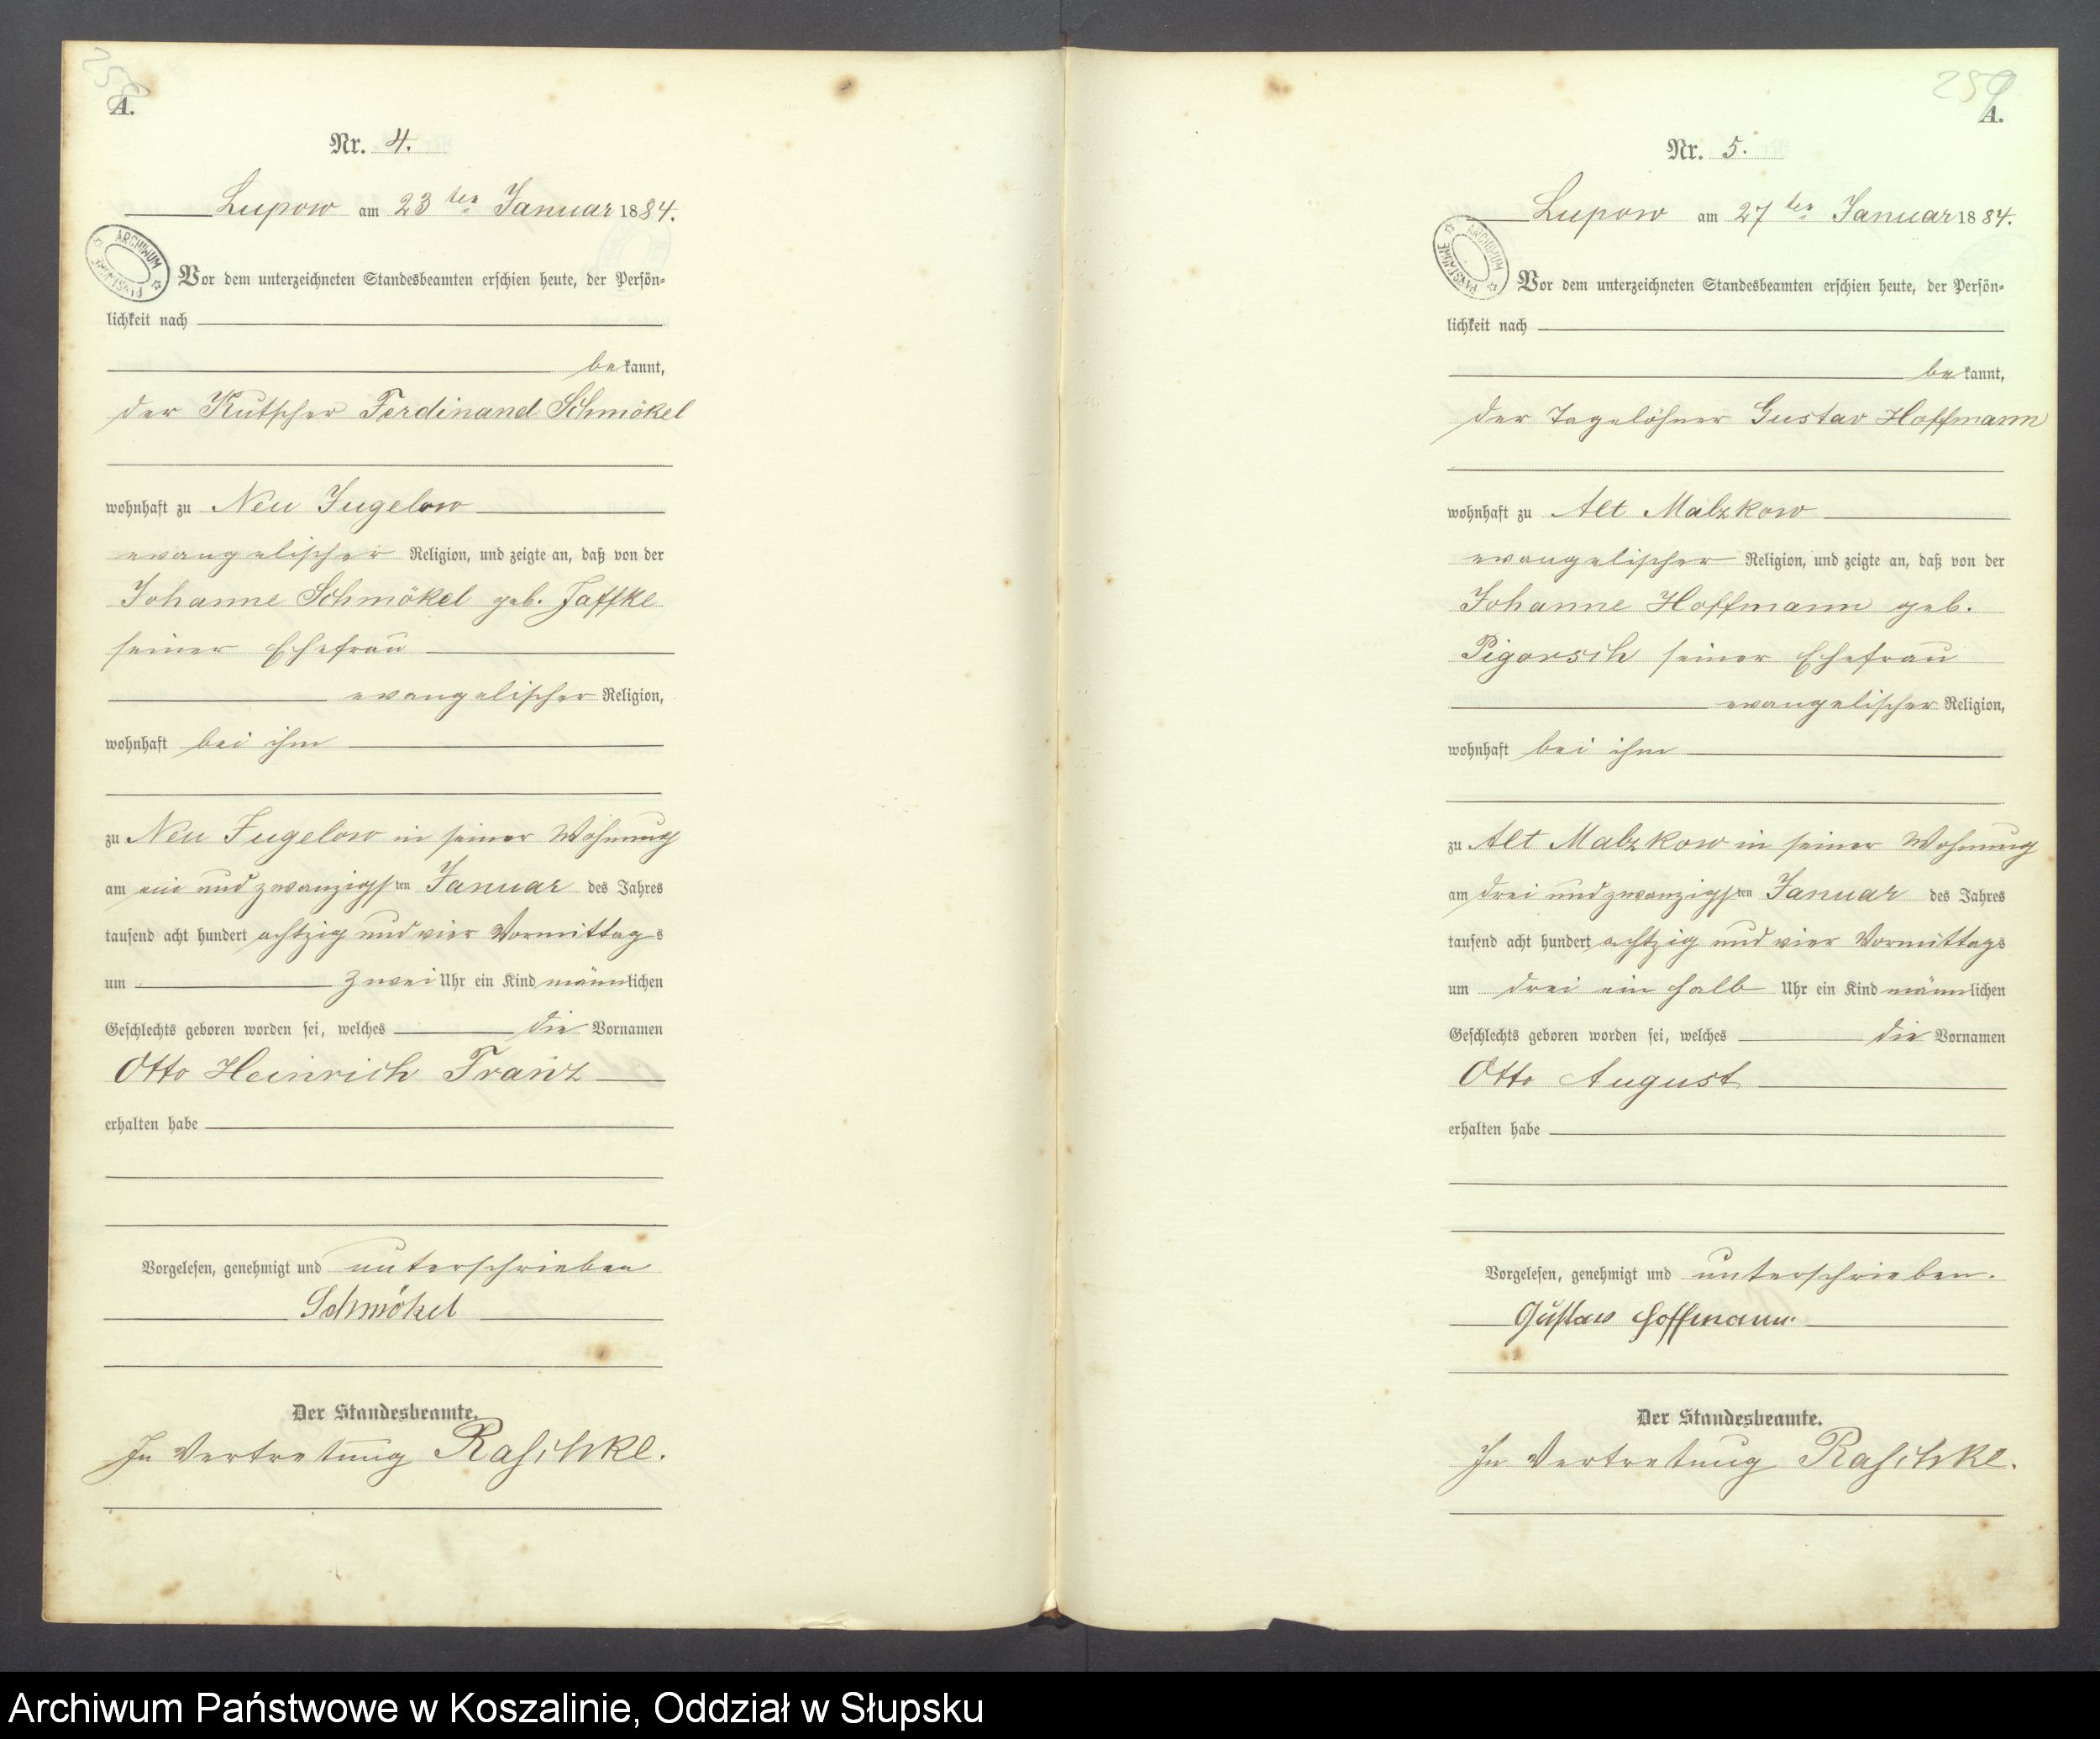 A.
Nr. 4.
Lupow am 23 ten Januar 1884.
ARCHIWUM PAŃSTWOWE
Vor dem unterzeichneten Standesbeamten erschien heute, der Persön-
lichkeit nach
bekannt,
der Kutscher Ferdinand Schmökel
wohnhaft zu Neu Jugelow
evangelischer Religion, und zeigte an, daß von der
Johanne Schmökel geb. Jaffke
seiner Ehefrau
evangelischer Religion,
wohnhaft bei ihm
zu Neu Jugelow in seiner Wohnung
am ein und zwanzigsten Januar des Jahres
tausend acht hundert achtzig und vier Vormittags
um zwei Uhr ein Kind männlichen
Geschlechts geboren worden sei, welches die Vornamen
Otto Heinrich Franz
erhalten habe
Vorgelesen, genehmigt und unterschrieben
Schmökel
Der Standesbeamte.
In Vertretung Raschke.
259
A.
Nr. 5.
Lupow am 27 ten Januar 1884.
ARCHIWUM PAŃSTWOWE
Vor dem unterzeichneten Standesbeamten erschien heute, der Persön-
lichkeit nach
bekannt,
der Tagelöhner Gustav Hoffmann
wohnhaft zu Alt Malzkow
evangelischer Religion, und zeigte an, daß von der
Johanne Hoffmann geb.
Pigorsch seiner Ehefrau
evangelischer Religion,
wohnhaft bei ihm
zu Alt Malzkow in seiner Wohnung
am drei und zwanzigsten Januar des Jahres
tausend acht hundert achtzig und vier Vormittags
um drei ein halb Uhr ein Kind männlichen
Geschlechts geboren worden sei, welches die Vornamen
Otto August
erhalten habe
Vorgelesen, genehmigt und unterschrieben.
Gustav Hoffmann.
Der Standesbeamte.
In Vertretung Raschke.
Archiwum Państwowe w Koszalinie, Oddział w Słupsku